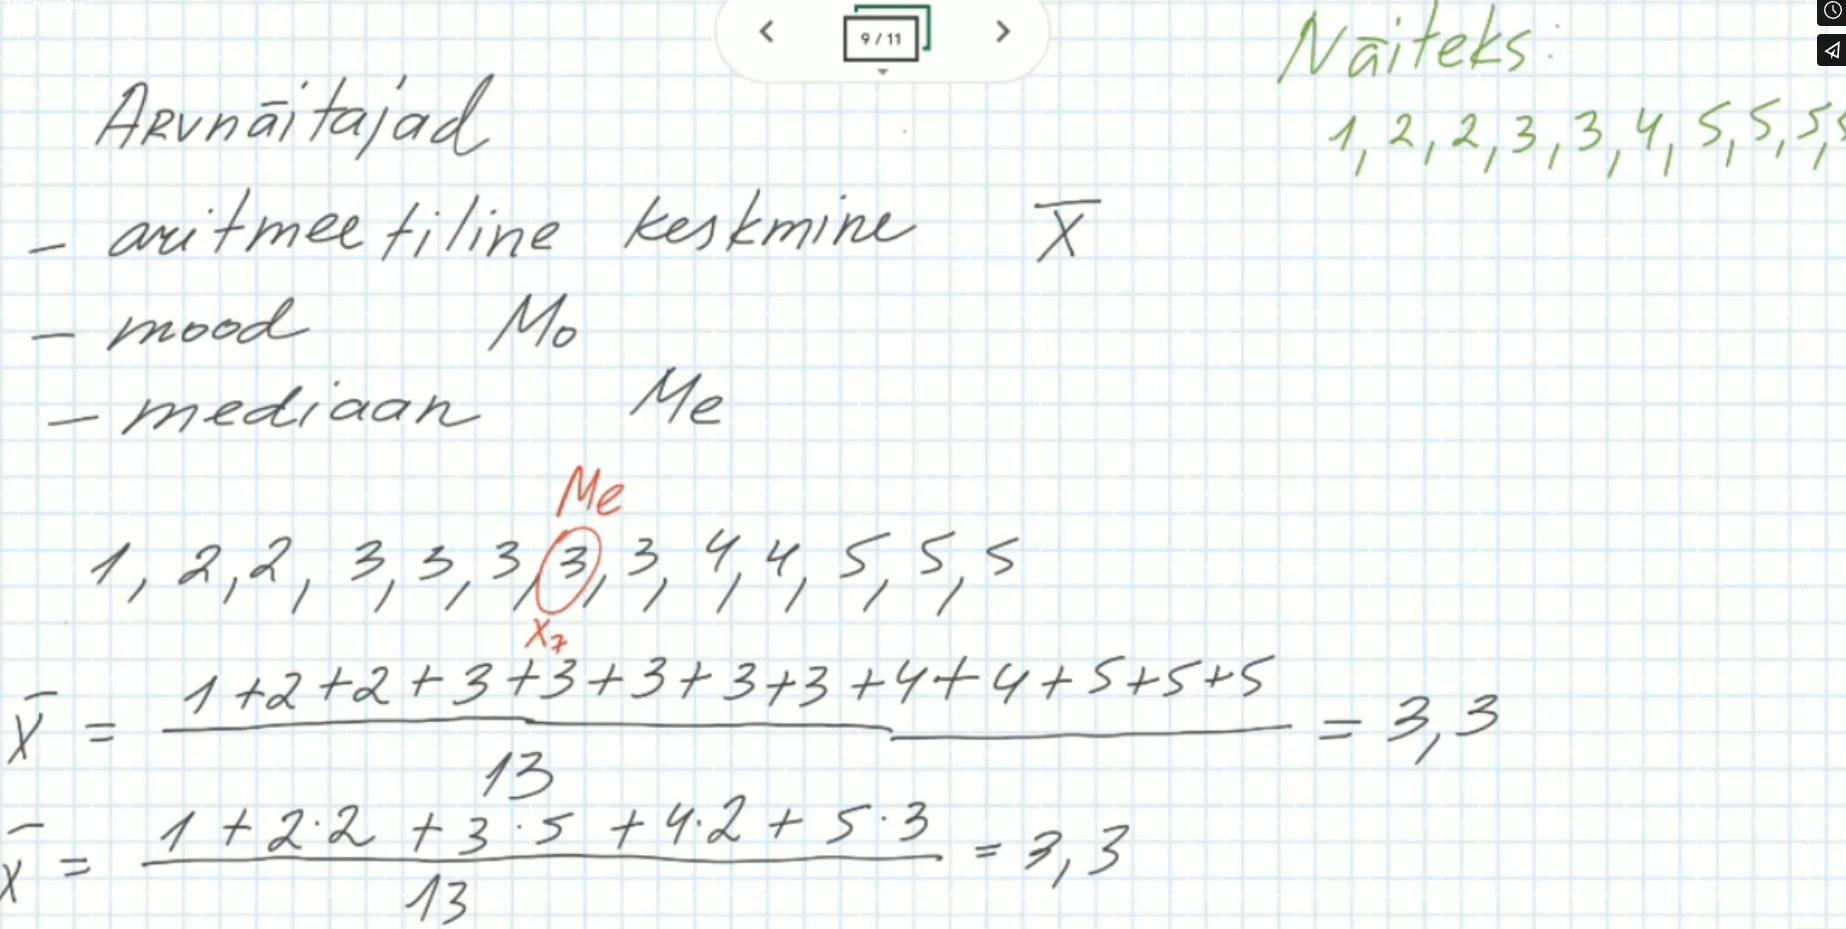 9 / 11
Näiteks:
1, 2, 2, 3, 3, 4, 5, 5, 5,
Arvnäitajad
- aritmeetiline keskmine x̄
- mood Mo
- mediaan Me
Me
1, 2, 2, 3, 3, 3, 3, 3, 4, 4, 5, 5, 5
x₇
x̄ = (1+2+2+3+3+3+3+3+4+4+5+5+5)/13 = 3,3
x̄ = (1+2·2+3·5+4·2+5·3)/13 = 3,3